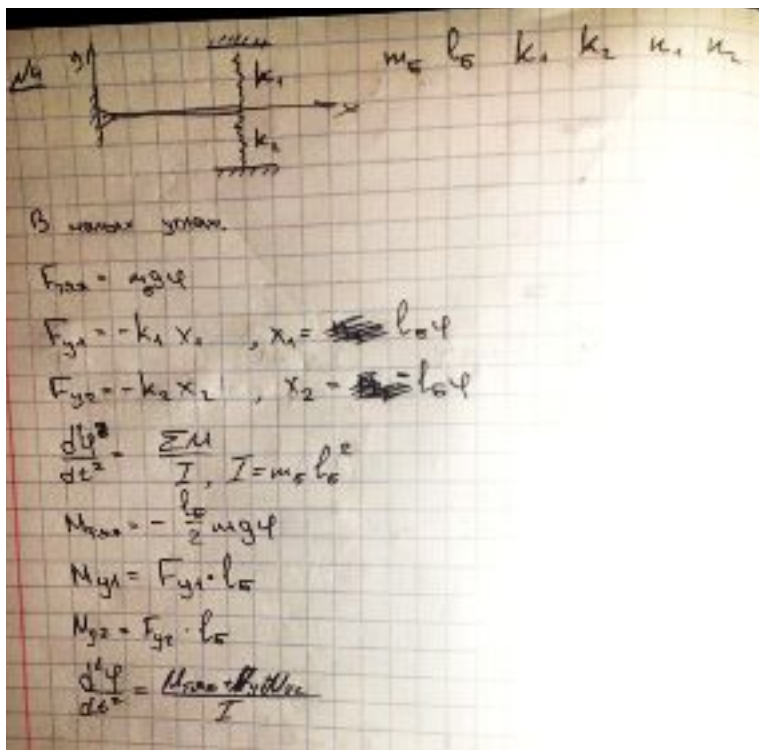 №4 y k₁ m_б l_б k₁ k₂ ϰ₁ ϰ₂
x
k₂
В малых углах.
F_тяж = mgφ
F_у1 = -k₁ x₁ , x₁ = l_б φ
F_у2 = -k₂ x₂ , x₂ = -l_б φ
d²φ/dt² = ΣM/I , I = m_б l_б²
M_тяж = - l_б/2 mgφ
M_у1 = F_у1 · l_б
M_у2 = F_у2 · l_б
d²φ/dt² = (M_тяж + M_у1 + M_у2)/I